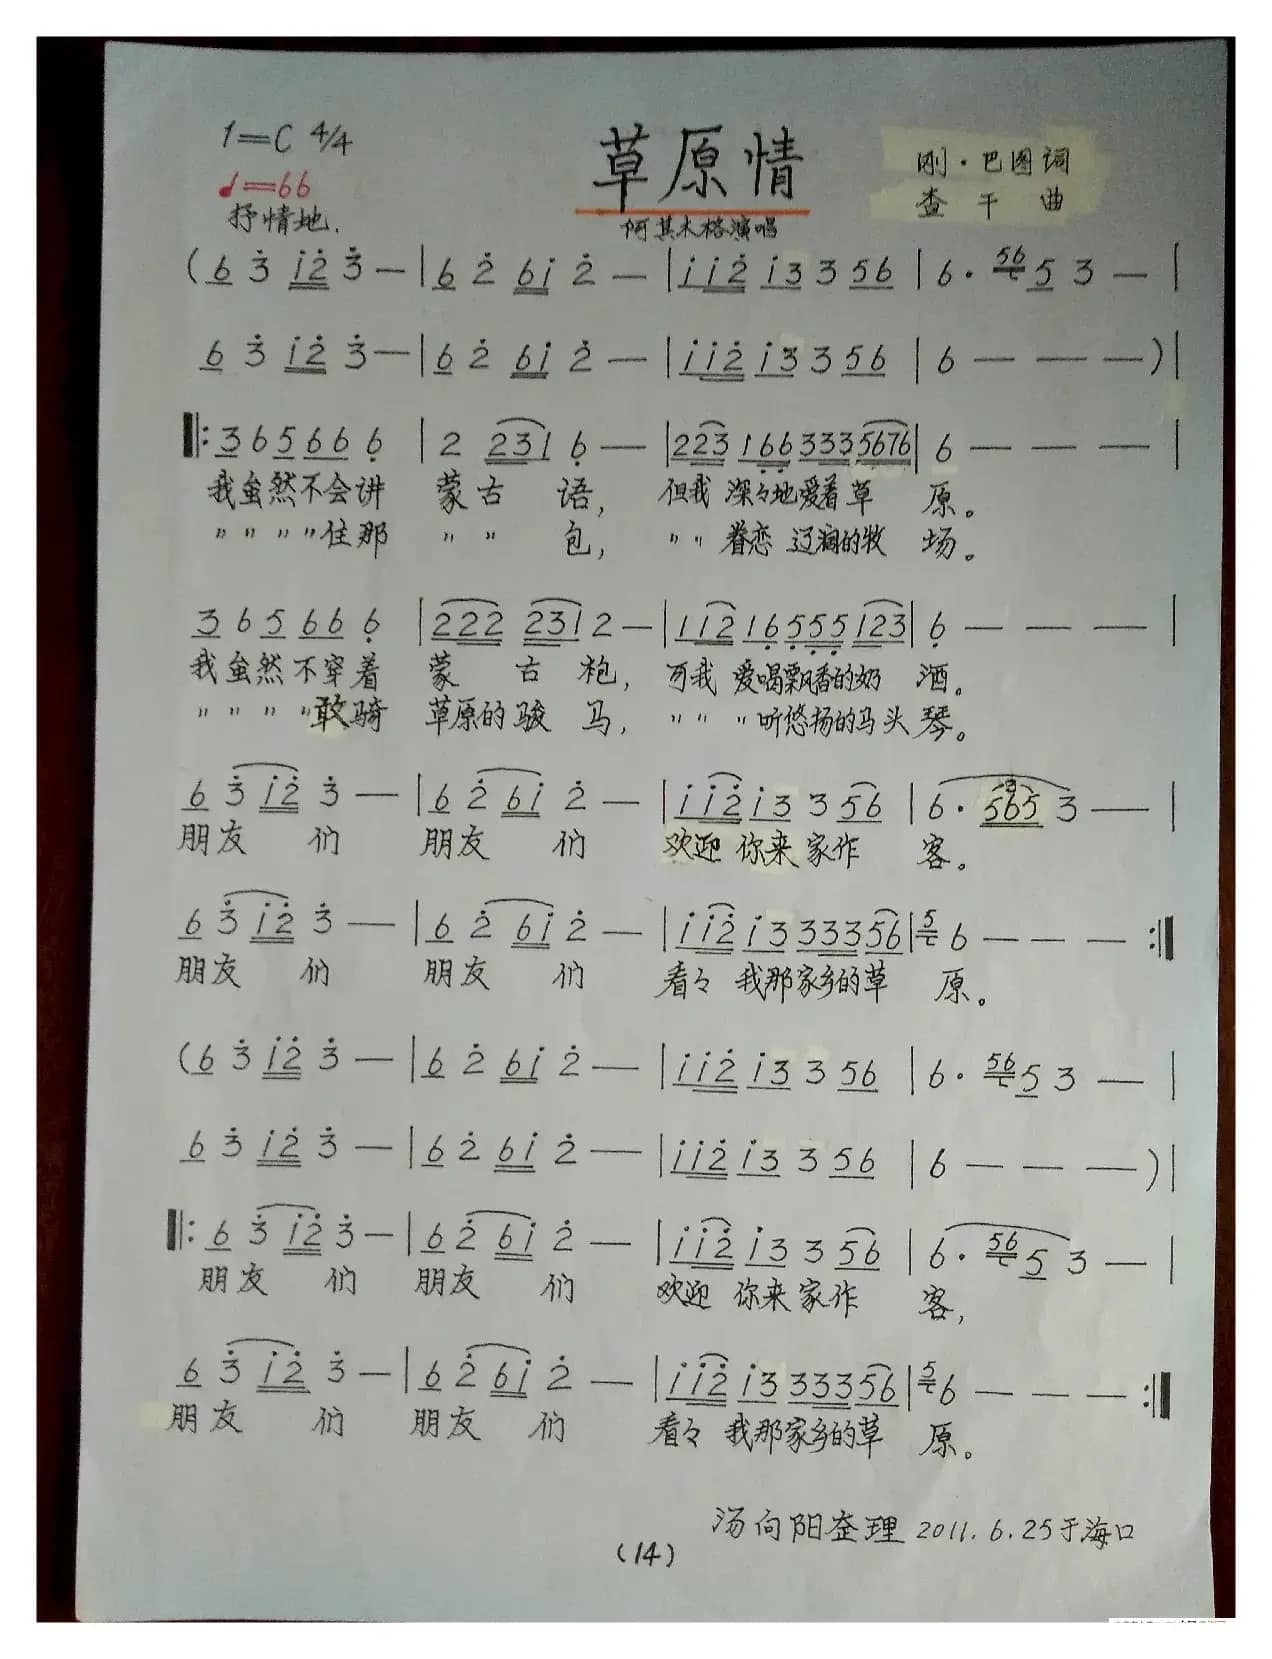 1=C 4/4
草原情
刚·巴图词
♩=66
查干曲
抒情地.
何其木格演唱
(6 3̇ i̇2̇ 3̇ — | 6 2̇ 6i̇ 2̇ — | i̇i̇2̇ i̇3 3 56 | 6· 56 5 3 — |
6 3̇ i̇2̇ 3̇ — | 6 2̇ 6i̇ 2̇ — | i̇i̇2̇ i̇3 3 56 | 6 — — — )|
‖: 3 6 5 66 6̣ | 2 231 6̣ — | 223 16̣6̣ 333 5̣6̣7̣6̣ | 6 — — — |
我虽然不会讲 蒙古语, 但我 深々地爱着草 原。
〃〃〃〃住那 〃〃包, 〃〃 眷恋 辽润的牧 场。
3 6 5 66 6̣ | 222 231 2 — | 112 16̣ 5̣5̣5̣ 123 | 6̣ — — — |
我虽然不穿着 蒙古袍, 可我 爱喝飘香的奶 酒。
〃〃〃〃敢骑 草原的骏马, 〃〃 〃听悠扬的马头琴。
6 3̇ i̇2̇ 3̇ — | 6 2̇ 6i̇ 2̇ — | i̇i̇2̇ i̇3 3 56 | 6· 3 565 3 — |
朋友们 朋友们 欢迎 你来家作 客。
6 3̇ i̇2̇ 3̇ — | 6 2̇ 6i̇ 2̇ — | i̇i̇2̇ i̇3 333 56 | 5 6 — — — :‖
朋友们 朋友们 看々 我那家乡的草 原。
(6 3̇ i̇2̇ 3̇ — | 6 2̇ 6i̇ 2̇ — | i̇i̇2̇ i̇3 3 56 | 6· 56 5 3 — |
6 3̇ i̇2̇ 3̇ — | 6 2̇ 6i̇ 2̇ — | i̇i̇2̇ i̇3 3 56 | 6 — — — )|
‖: 6 3̇ i̇2̇ 3̇ — | 6 2̇ 6i̇ 2̇ — | i̇i̇2̇ i̇3 3 56 | 6· 56 5 3 — |
朋友们 朋友们 欢迎 你来家作 客,
6 3̇ i̇2̇ 3̇ — | 6 2̇ 6i̇ 2̇ — | i̇i̇2̇ i̇3 333 56 | 5 6 — — — :‖
朋友们 朋友们 看々 我那家乡的草 原。
汤向阳整理 2011.6.25于海口
(14)